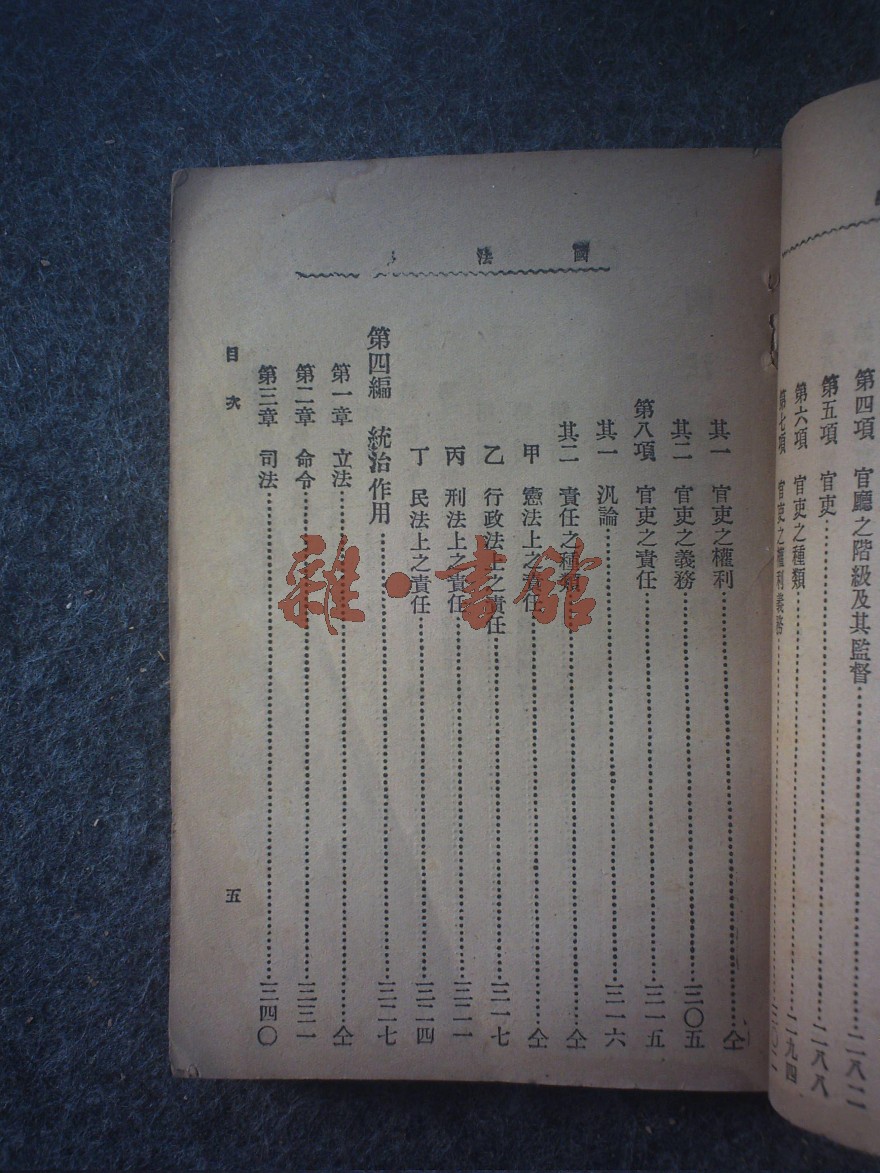 第四項 官廳之階級及其監督……二八二
第五項 官吏……二八八
第六項 官吏之種類……二九四
第七項 官吏之權利義務……三〇二
國法
其一 官吏之權利……仝
其二 官吏之義務……三〇五
第八項 官吏之責任……三一五
其一 汎論……三一六
其二 責任之種類……仝
甲 憲法上之責任……仝
乙 行政法上之責任……三一七
丙 刑法上之責任……三二一
丁 民法上之責任……三二四
第四編 統治作用……三二七
第一章 立法……仝
第二章 命令……三三一
第三章 司法……三四〇
目次 五
雜·書館